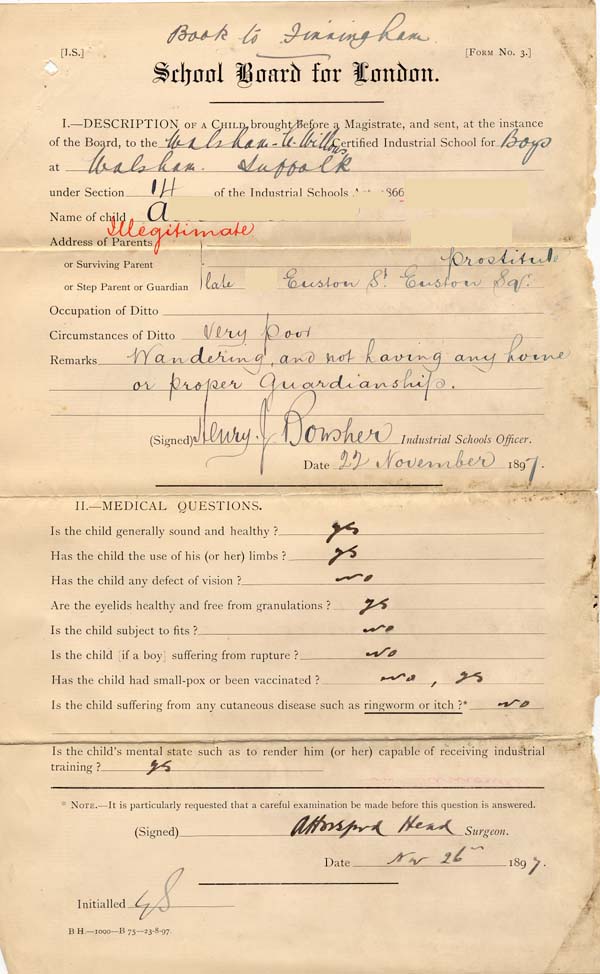 Book to Finningham
[I.S.] [Form No. 3.]
School Board for London.
I.—DESCRIPTION OF A CHILD brought before a Magistrate, and sent, at the instance
of the Board, to the Walsham-le-Willows Certified Industrial School for Boys
at Walsham. Suffolk
under Section 14 of the Industrial Schools Act 1866
Name of child A
Illegitimate
Address of Parents
or Surviving Parent prostitute
or Step Parent or Guardian late Euston St. Euston Sqr.
Occupation of Ditto
Circumstances of Ditto Very poor
Remarks Wandering, and not having any home
or proper Guardianship.
(Signed) Henry J Bowsher Industrial Schools Officer.
Date 22 November 1897.
II.—MEDICAL QUESTIONS.
Is the child generally sound and healthy ? yes
Has the child the use of his (or her) limbs ? yes
Has the child any defect of vision ? no
Are the eyelids healthy and free from granulations ? yes
Is the child subject to fits ? no
Is the child [if a boy] suffering from rupture ? no
Has the child had small-pox or been vaccinated ? no, yes
Is the child suffering from any cutaneous disease such as ringworm or itch ?* no
Is the child's mental state such as to render him (or her) capable of receiving industrial
training ? yes
* NOTE.—It is particularly requested that a careful examination be made before this question is answered.
(Signed) Head Surgeon.
Date Nov 26th 1897.
Initialled
B H.—1000—B 75—23-8-97.